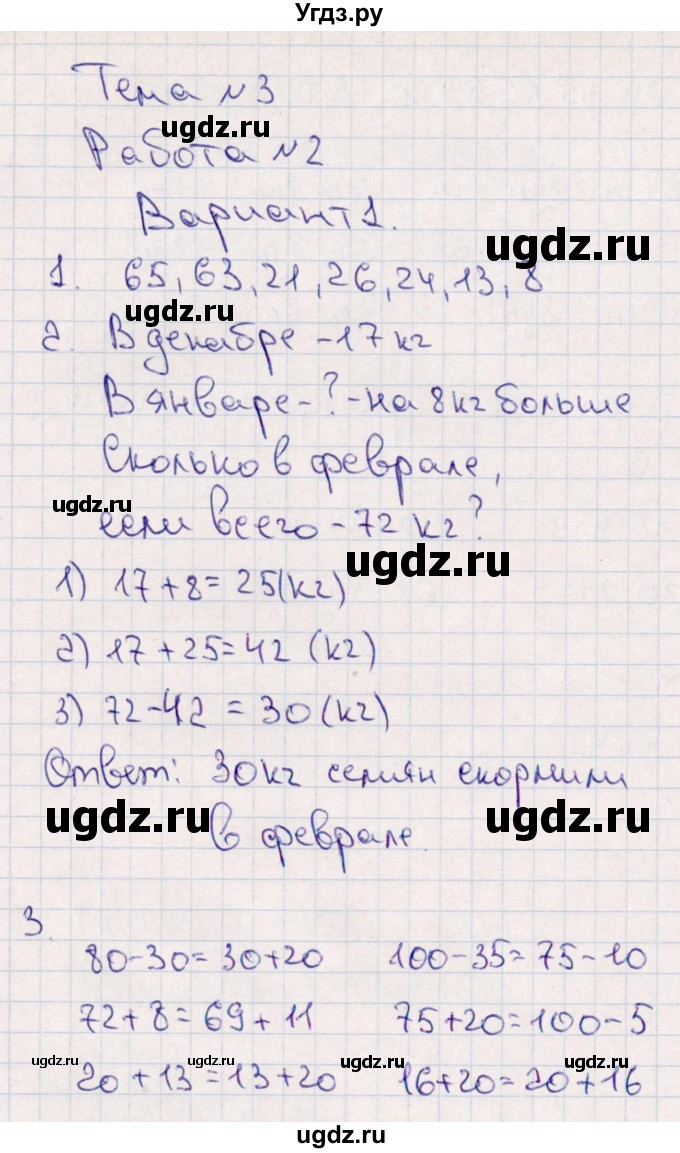 Угдз.ру
Тема №3
ugdz.ru
Работа №2
Вариант 1.
ugdz.ru
1. 65, 63, 21, 26, 24, 13, 8
ugdz.ru
2. В декабре - 17 кг
В январе - ? - на 8 кг больше
Сколько в феврале,
ugdz.ru
если всего - 72 кг?
ugdz.ru
1) 17 + 8 = 25 (кг)
2) 17 + 25 = 42 (кг)
3) 72 - 42 = 30 (кг)
Ответ: 30 кг семян скормили
ugdz.ru ugdz.ru
в феврале.
3.
80 - 30 = 30 + 20 100 - 35 = 75 - 10
72 + 8 = 69 + 11 75 + 20 = 100 - 5
ugdz.ru ugdz.ru ugdz.ru ugdz.ru
20 + 13 = 13 + 20 16 + 20 = 20 + 16
ugdz.ru